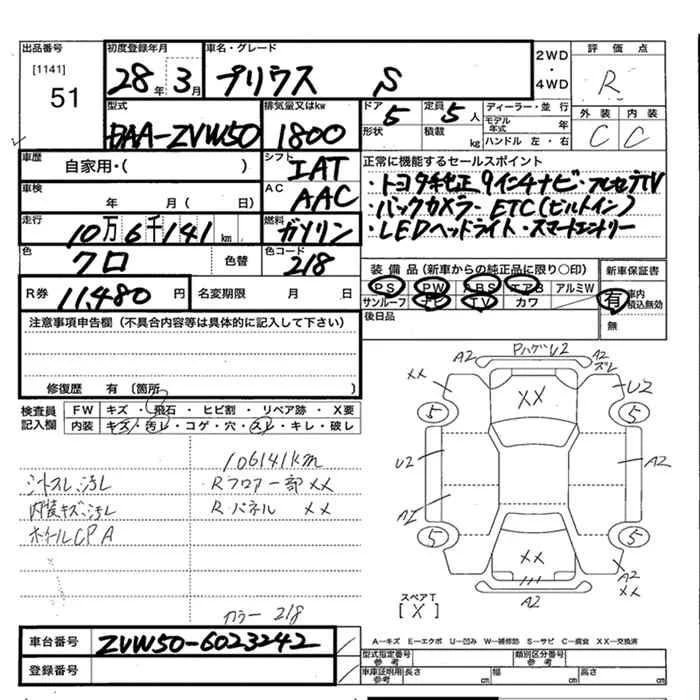 出品番号
[1141]
51
初度登録年月
28年 3月
車名・グレード
プリウス S
2WD
・
4WD
評価点
R
外装 内装
C C
型式
DAA-ZVW50
排気量又はkw
1800
ドア 5
形状
定員 5人
積載 kg
ディーラー・並行
モデル年式 年
ハンドル 左・右
車歴
自家用・( )
シフト
IAT
車検
年 月( 日)
AC
AAC
走行
10万6千141km
燃料
ガソリン
色
クロ
色替
色コード
218
R券
11,480円
名変期限 月 日
正常に機能するセールスポイント
・トヨタ純正9インチナビ・フルセグTV
・バックカメラ・ETC(ビルトイン)
・LEDヘッドライト・スマートエントリー
装備品(新車からの純正品に限り〇印)
PS PW ABS エアB アルミW
サンルーフ TV カワ
後日品
新車保証書
有 車内積込無効
無
注意事項申告欄(不具合内容等は具体的に記入して下さい)
修復歴 有(箇所
検査員記入欄
FW キズ・飛石・ヒビ割・リペア跡・X要
内装 キズ・汚レ・コゲ・穴・スレ・キレ・破レ
106141km
シートスレ、汚レ
Rフロアー部××
内装キズ、汚レ
Rパネル ××
ホイールCPA
カラー 218
PハゲU2
A2
A2
ズレ
××
××
U2
5
5
U2
A2
A2
5
5
××
A2
××
A2
スペアT
[X]
車台番号
ZVW50-6023242
登録番号
A―キズ E―エクボ U―凹み W―補修跡 S―サビ C―腐食 XX―交換済
型式指定番号
参考
類別区分番号
参考
車庫証明用
参考
長さ cm
幅 cm
高さ cm